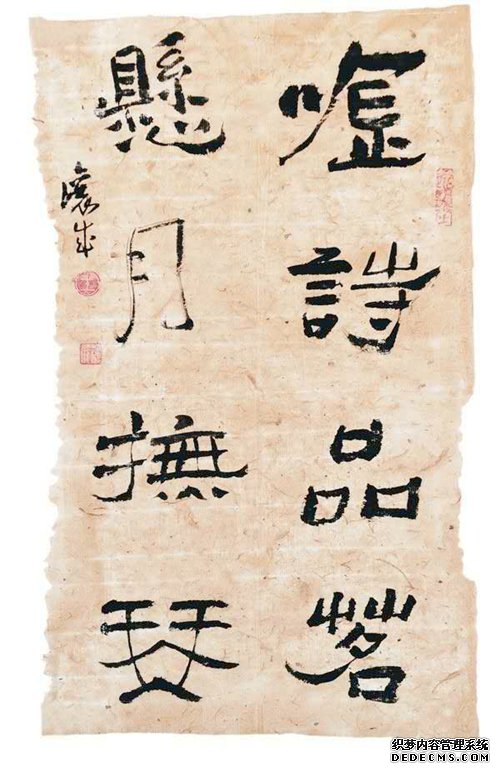 噓詩品茗
懸月撫琴
织梦内容管理系统
DEDECMS.COM